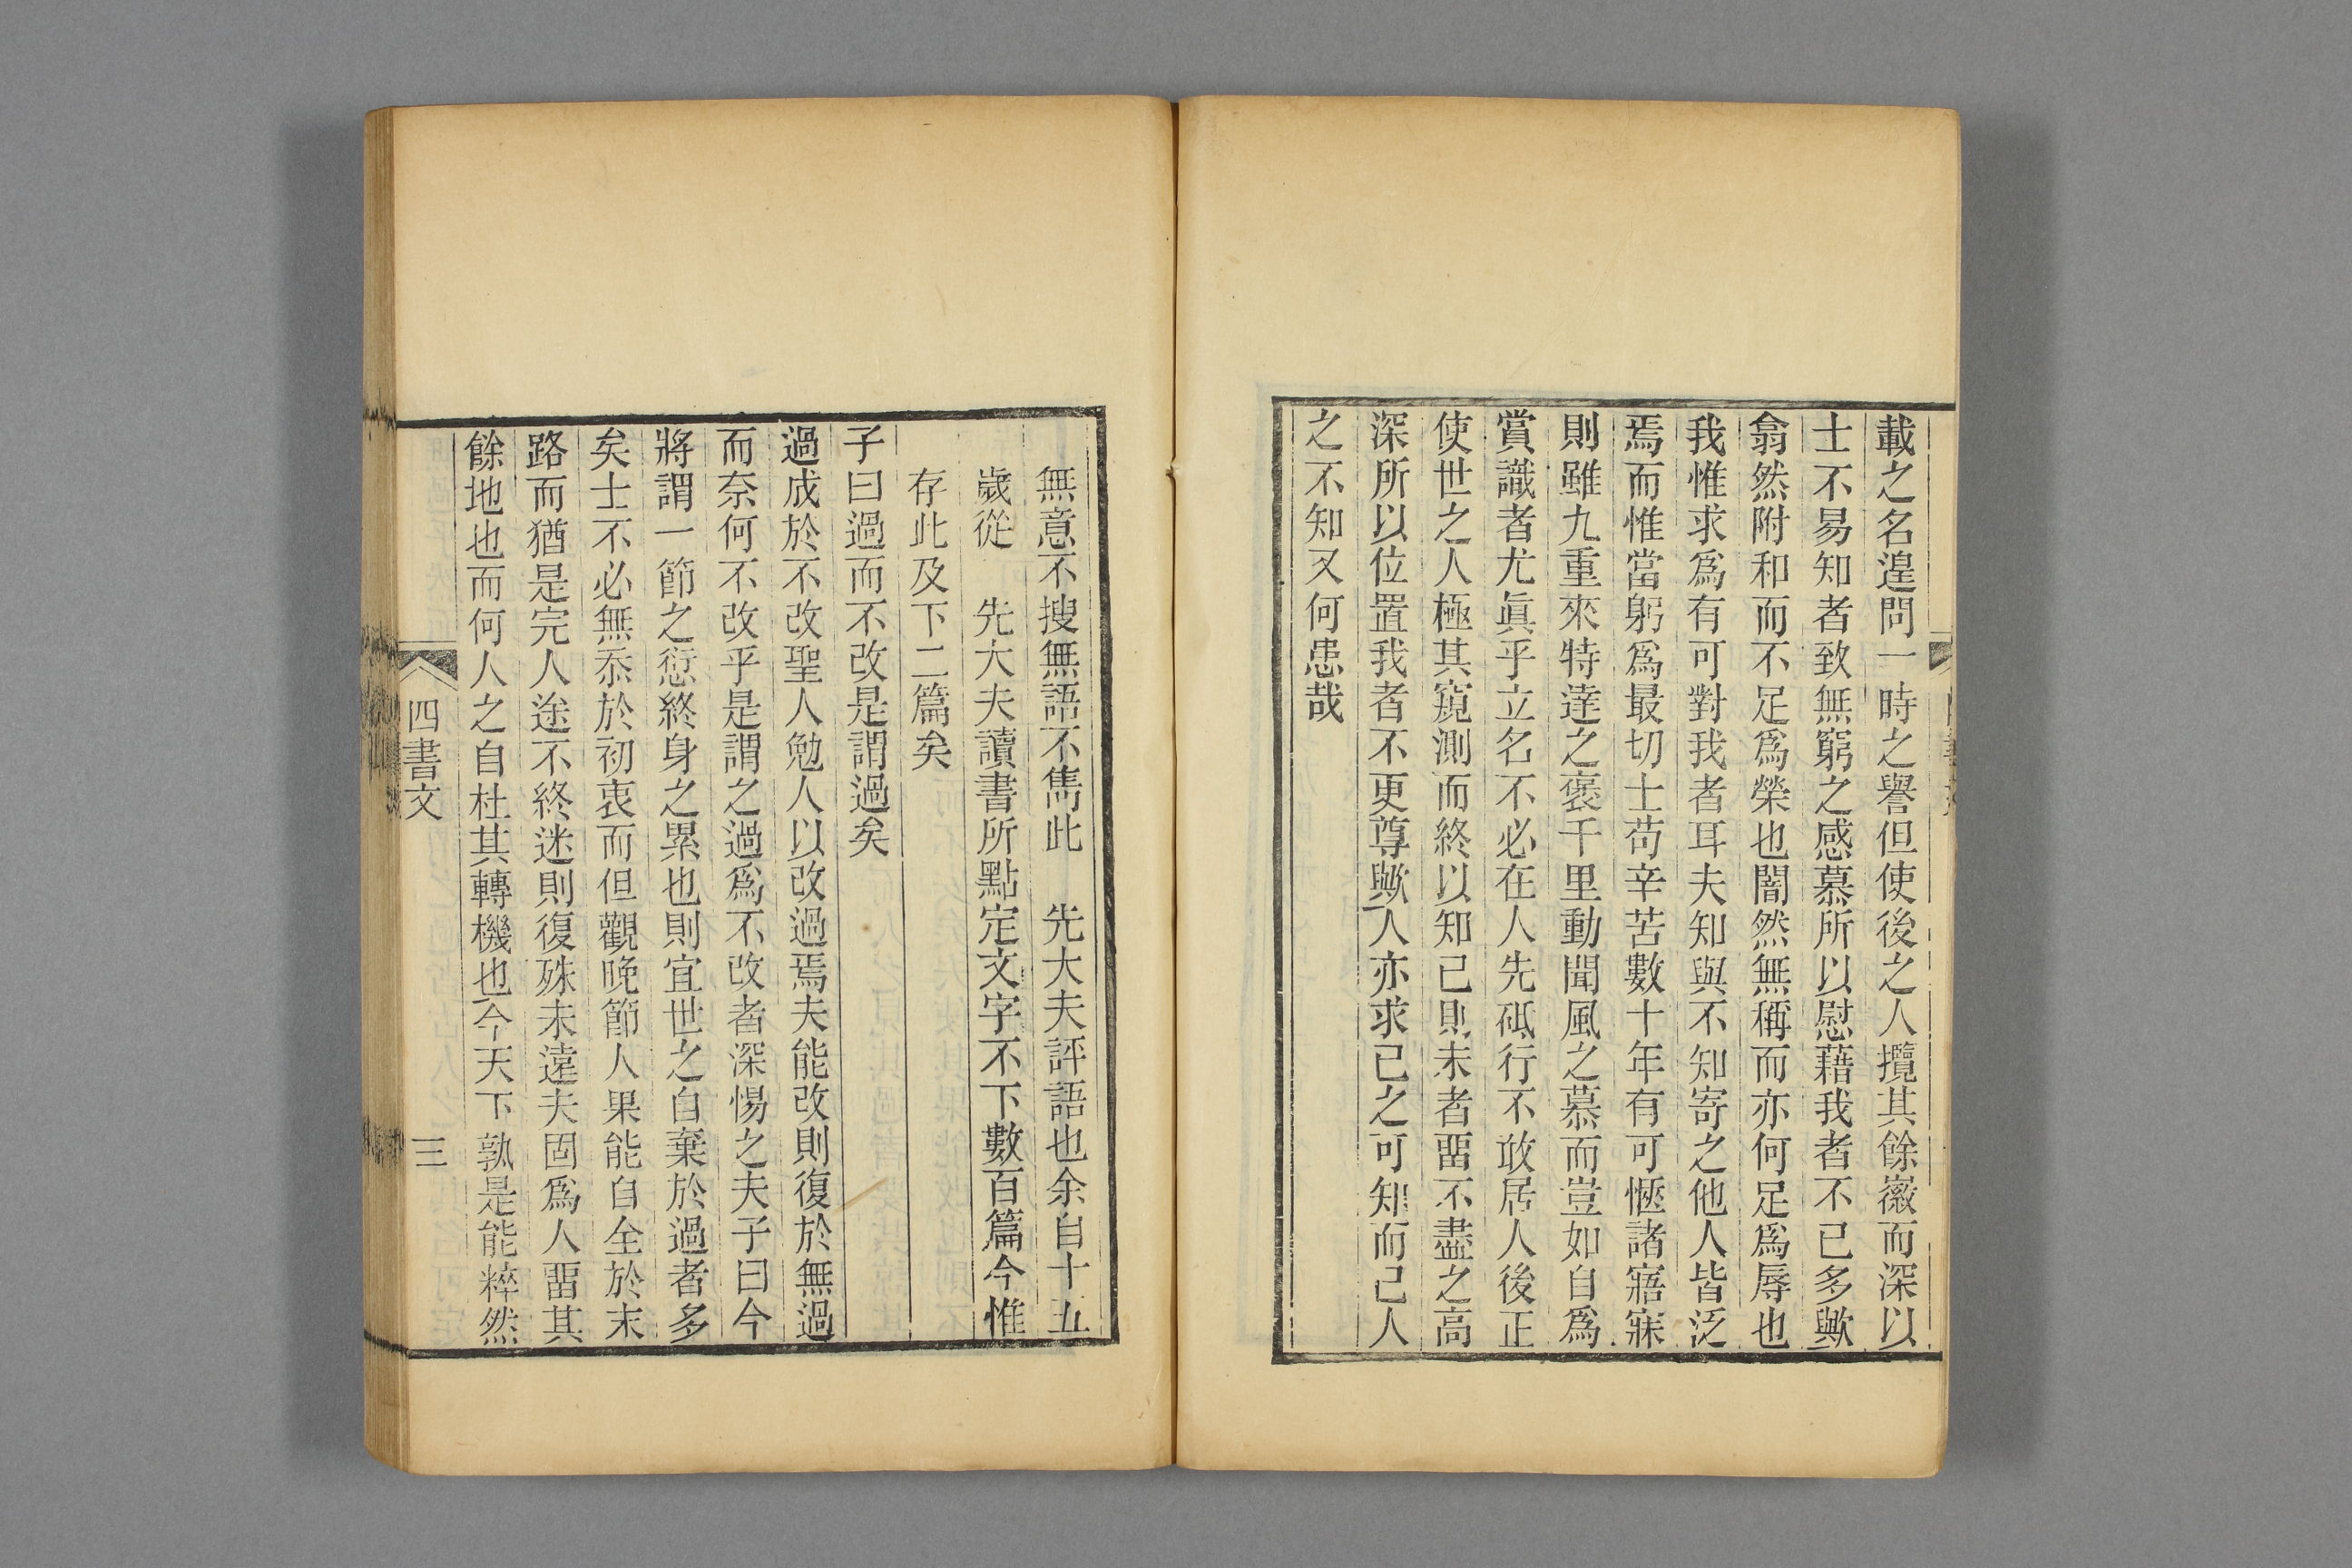 載之名遑問一時之譽但使後之人攬其餘徽而深以
士不易知者致無窮之感慕所以慰藉我者不已多歟
翕然附和而不足爲榮也闇然無稱而亦何足爲辱也
我惟求爲有可對我者耳夫知與不知寄之他人皆泛
焉而惟當躬爲最切士苟辛苦數十年有可愜諸寤寐
則雖九重來特達之褒千里動聞風之慕而豈如自爲
賞識者尤眞乎立名不必在人先砥行不敢居人後正
使世之人極其窺測而終以知知己則未者畱不盡之高
深所以位置我者不更尊歟人亦求己之可知而已人
之不知又何患哉
無意不搜無語不雋此 先大夫評語也余自十五
歲從 先大夫讀書所點定文字不下數百篇今惟
存此及下二篇矣
子曰過而不改是謂過矣
過成於不改聖人勉人以改過焉夫能改則復於無過
而奈何不改乎是謂之過爲不改者深惕之夫子曰今
將謂一節之愆終身之累也則宜世之自棄於過者多
矣士不必無忝於初衷而但觀晚節人果能自全於末
路而猶是完人途不終迷則復殊未遠夫固爲人畱其
餘地也而何人之自杜其轉機也今天下孰是能粹然
四書文 三